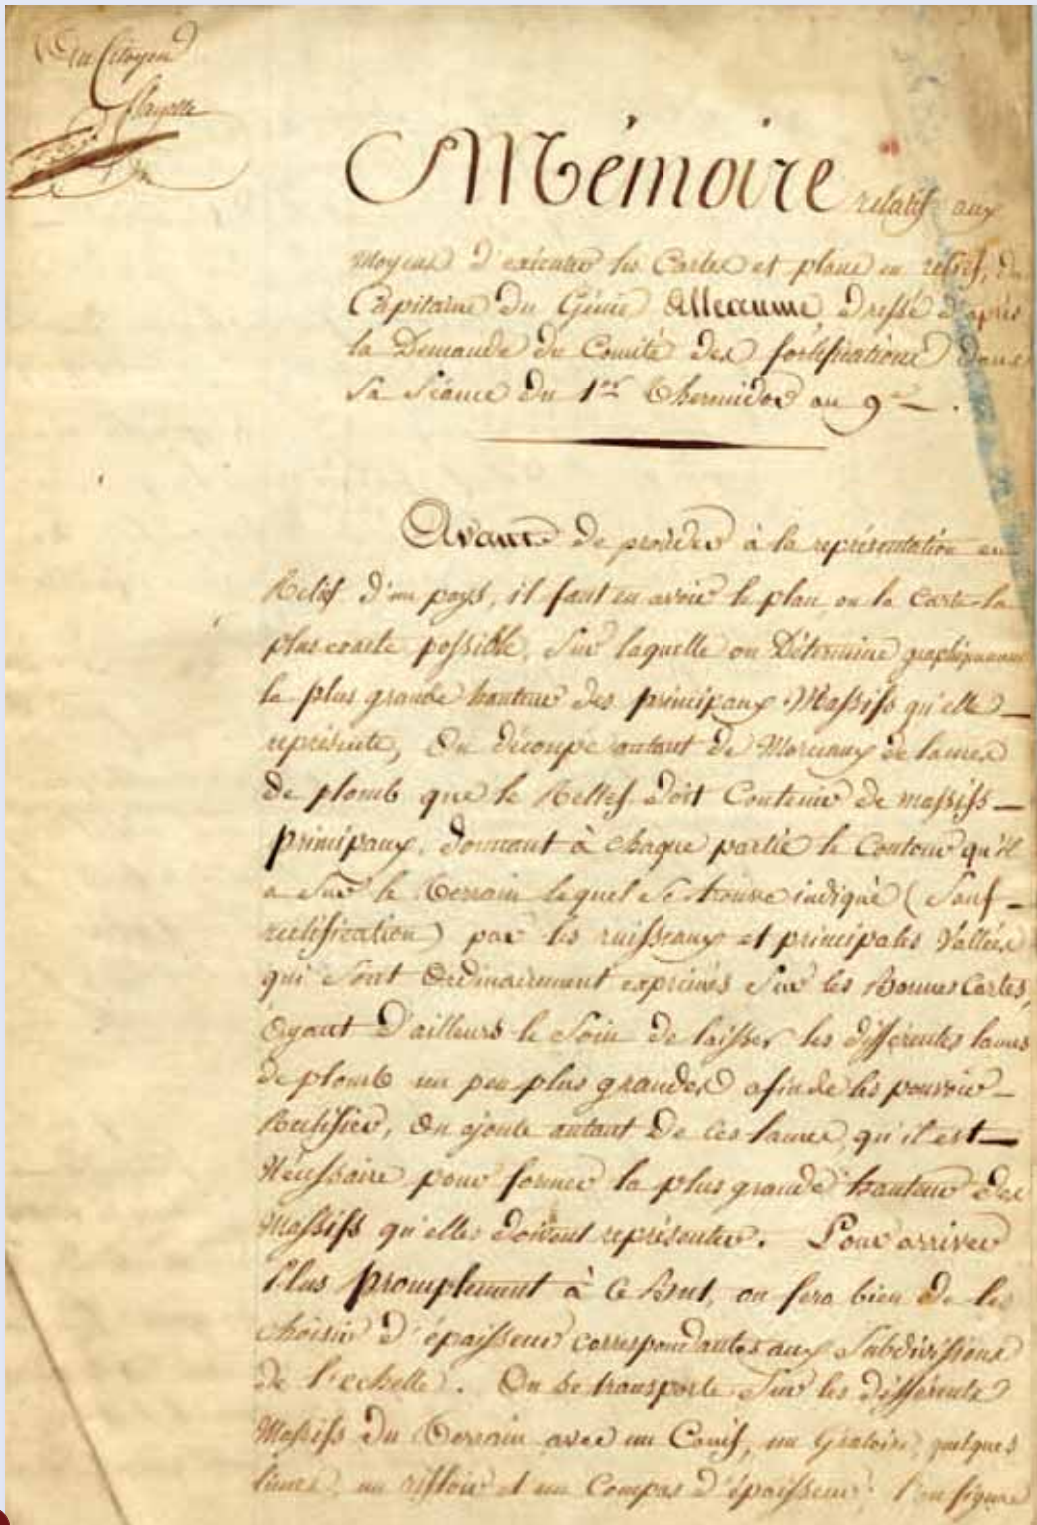 Du Citoyen
Mémoire relatif aux
moyens d'exécuter les Cartes et plans en relief, du
Capitaine du Génie Alleaume, dressé d'après
la Demande du Comité des fortifications dans
sa séance du 1er Thermidor an 9e.
Avant de procéder à la représentation en
Relief d'un pays, il faut en avoir le plan ou la Carte la
plus exacte possible, sur laquelle on Détermine graphiquement
la plus grande hauteur des principaux Massifs qu'elle
représente, On découpe autant de Morceaux de lames
de plomb que le Relief doit Contenir de massifs
principaux, donnant à chaque partie le Contour qu'il
a sur le Terrain lequel se trouve indiqué (Sauf
rectification) par les ruisseaux et principales Vallées
qui sont Ordinairement exprimés sur les Bonnes Cartes,
Ayant D'ailleurs le Soin de laisser les différentes lames
de plomb un peu plus grandes afin de les pouvoir
Rectifier, On ajoute autant De ces lames, qu'il est
Nécessaire pour former la plus grande hauteur des
Massifs qu'elles doivent représenter. Pour arriver
Plus promptement à Ce But, on fera bien de les
choisir d'épaisseurs correspondantes aux Subdivisions
de l'echelle. On se transporte sur les différents
Massifs du Terrain avec un Canif, un Gratoir, quelques
limes, un rifloir et un Compas d'épaisseur; l'on figure